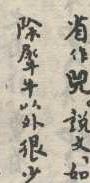 省作兕。說文、如
除犀牛以外很少